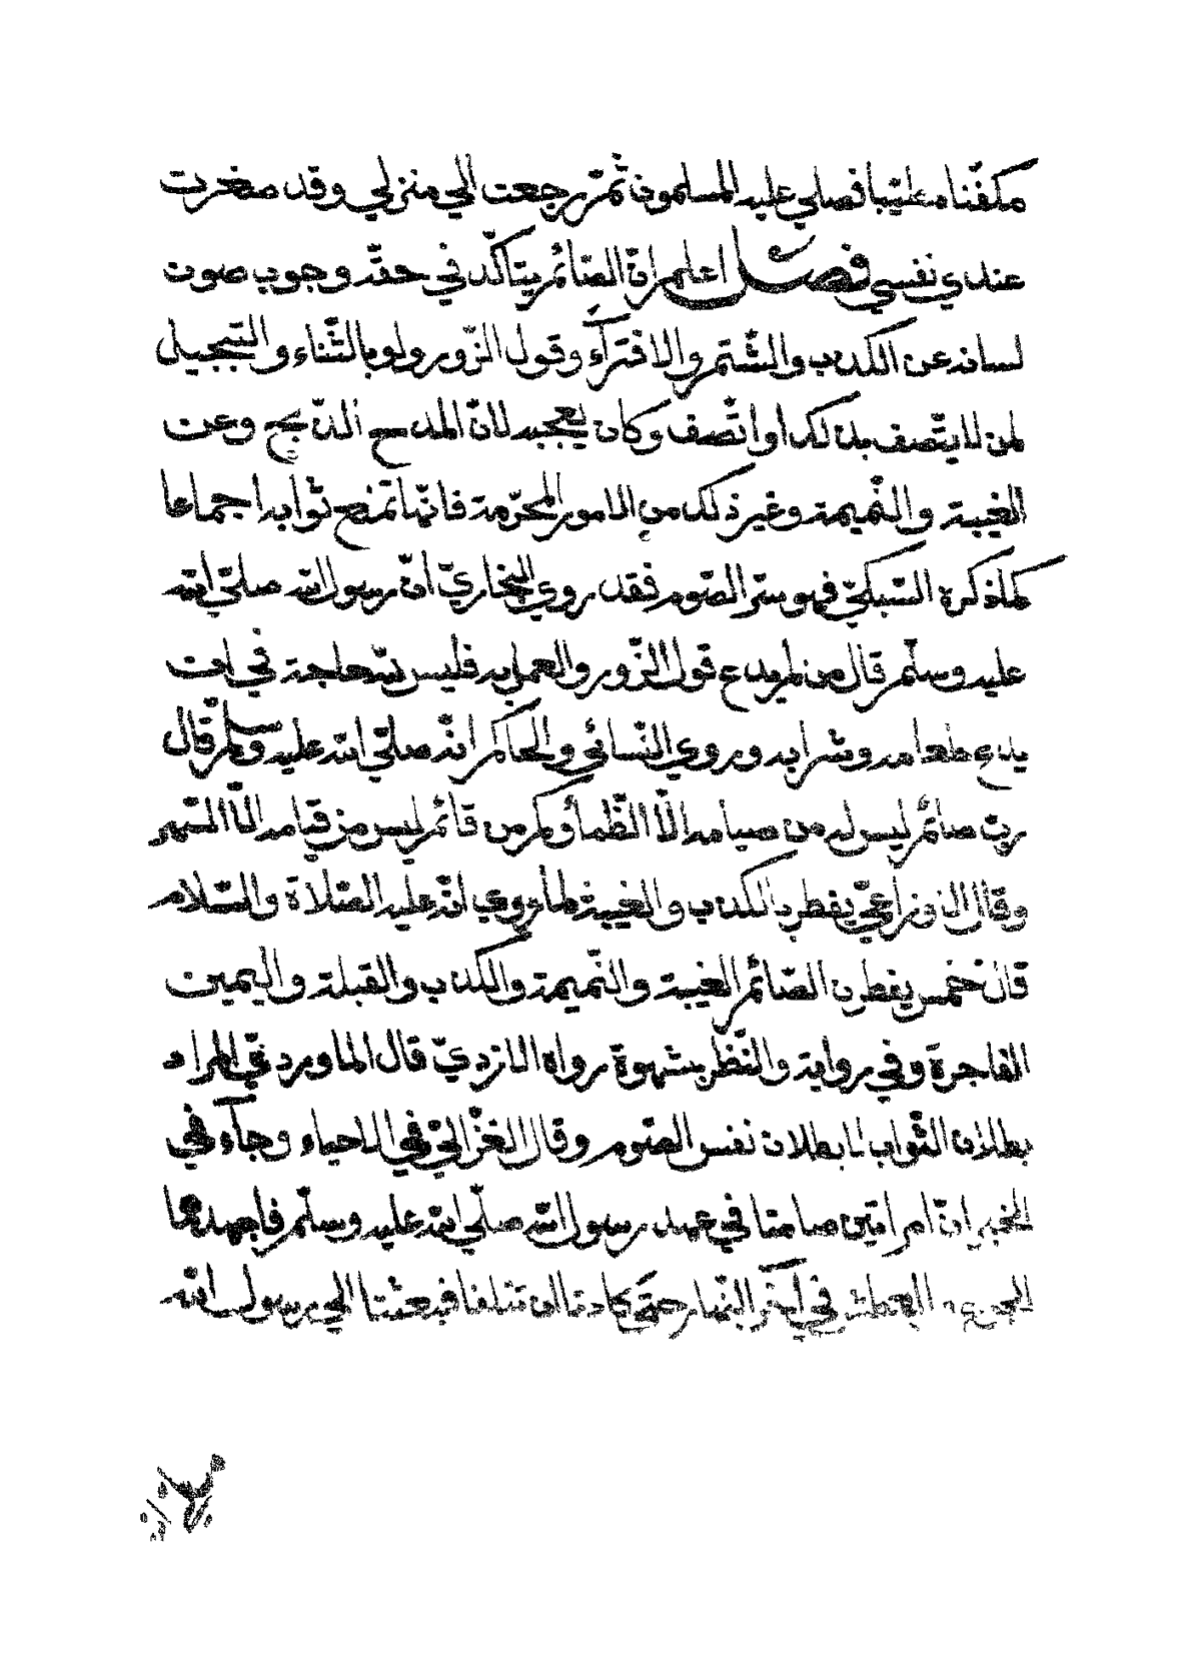 مكفّناه طيّبا فصلي عليه المسلمون ثمّ رجعت الي منزلي وقد صغرت
عندي نفسي فصل اعلم انّ الصّائم يتأكّد في حقّه وجوب صون
لسانه عن الكذب والشّتم والافترآء وقول الزّور ولو بالثّناء والتبجيل
لمن لا يتّصف بذلك او اتّصف وكان يعجبه لانّ المدح الذبح وعن
الغيبة والنّميمة وغير ذلك من الامور المحرّمة فانّها تمنع ثوابه اجماعا
كما ذكره السّبكيّ فهو سرّ الصّوم فقد روي البخاريّ انّ رسول الله صلّي الله
عليه وسلّم قال من لم يدع قول الزّور والعمل به فليس لله حاجة في ان
يدع طعامه وشرابه وروي النّسائي والحاكم انّه صلّي الله عليه وسلّم قال
ربّ صائم ليس له من صيامه الّا الظّمأ وكم من قائم ليس من قيامه الّا السّهر
وقال الاوزاعيّ يفطر بالكذب والغيبة لما روي انّه عليه الصّلاة والسّلام
قال خمس يفطرن الصّائم الغيبة والنّميمة والكذب والقبلة واليمين
الفاجرة وفي رواية والنّظر بشهوة رواه الازديّ قال الماوردي المراد
بطلان الثّواب لا بطلان نفس الصّوم وقال الغزاليّ في الاحياء وجآء في
الخبر انّ امراتين صامتا في عهد رسول الله صلّي الله عليه وسلّم فاجهدهما
الجوع والعطش في آخر النّهار حتّي كادتا ان تتلفا فبعثتا الي رسول الله